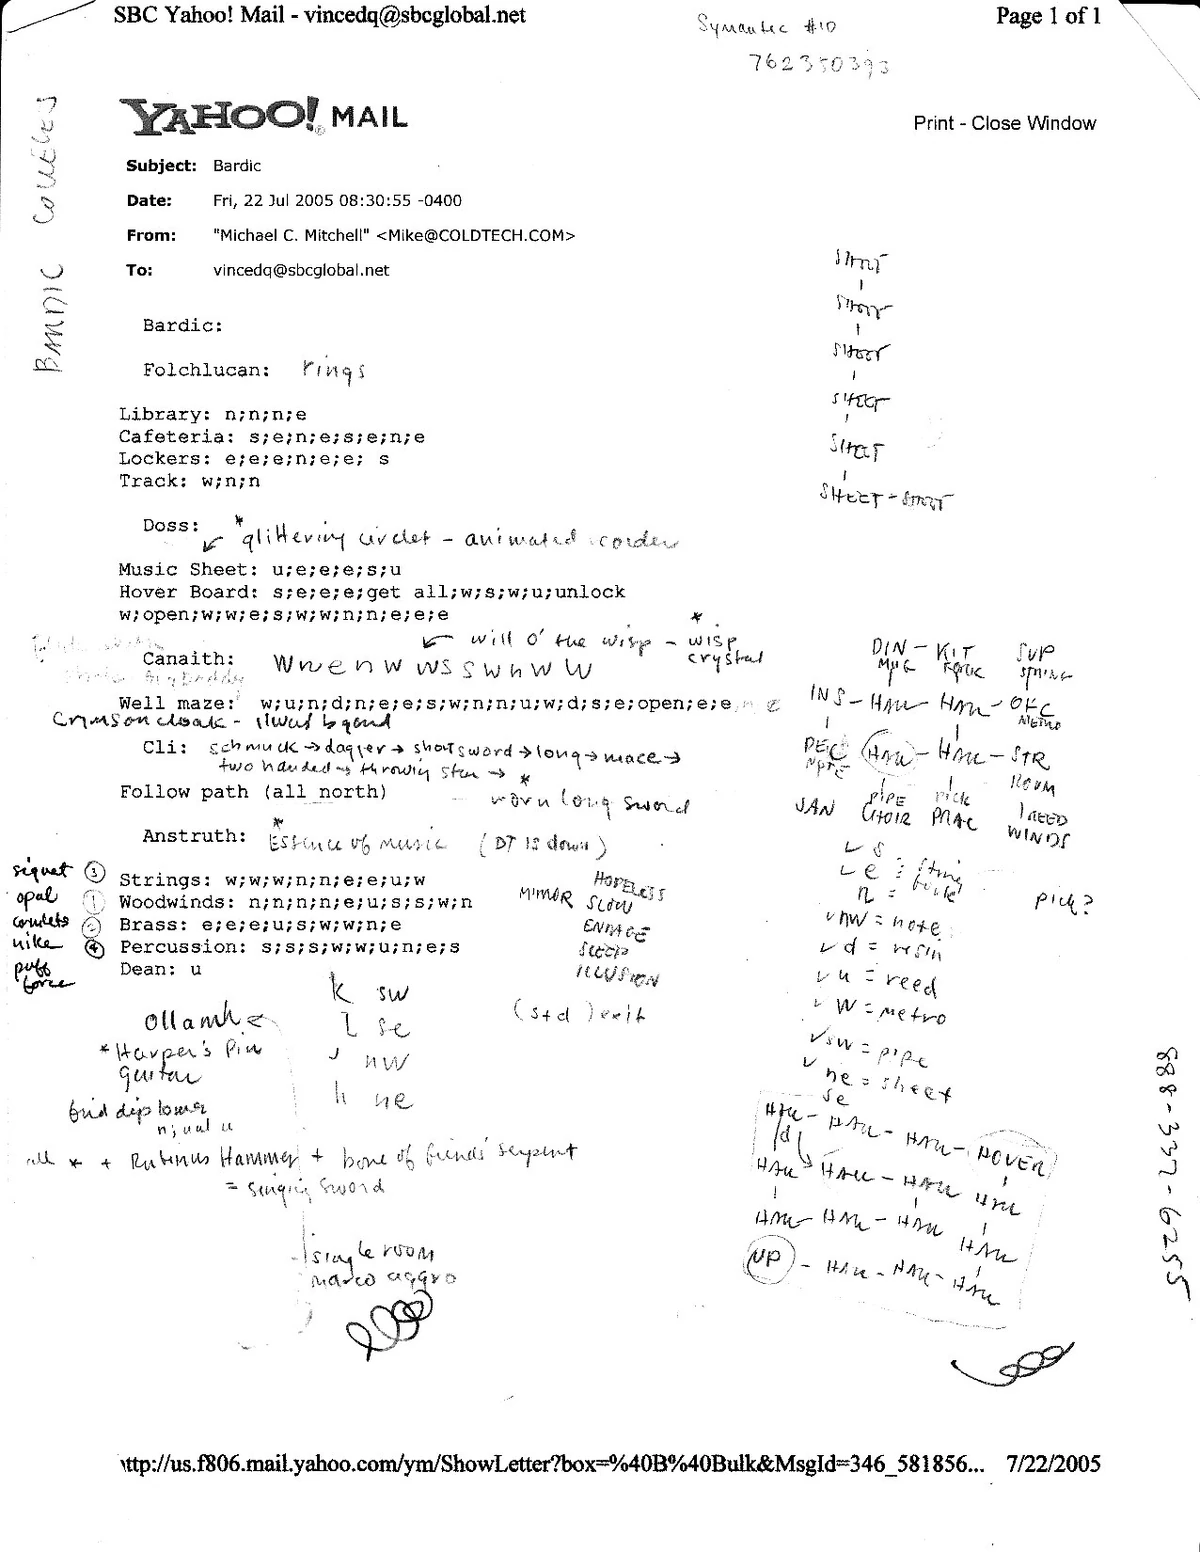 SBC Yahoo! Mail - vincedq@sbcglobal.net
Page 1 of 1
Symantec #10
762350393
YAHOO! MAIL
Print - Close Window
BARDIC COLLEGES
Subject: Bardic
Date: Fri, 22 Jul 2005 08:30:55 -0400
From: "Michael C. Mitchell" <Mike@COLDTECH.COM>
To: vincedq@sbcglobal.net
START
SHEET
SHEET
SHEET
SHEET - START
Bardic:
Folchlucan: rings
Library: n;n;n;e
Cafeteria: s;e;n;e;s;e;n;e
Lockers: e;e;e;n;e;e; s
Track: w;n;n
Doss: * glittering circlet - animated
Music Sheet: u;e;e;e;s;u
Hover Board: s;e;e;e;get all;w;s;w;u;unlock
w;open;w;w;e;s;w;w;n;n;e;e;e
will o' the wisp - * wisp
crystal
Canaith: W n w e n w w s s w n w w
Well maze: w;u;n;d;n;e;e;s;w;n;n;u;w;d;s;e;open;e;e
Crimson cloak -
Cli: schmuck → dagger → shortsword → long → mace →
two handed → throwing star → *
Follow path (all north) worn long sword
DIN - KIT SUP
STRING
INS - HALL - HALL - OFC
METRO
HALL - HALL - STR
ROOM
JAN PIPE pick
CHOIR PRAC WINDS
REED
Anstruth: * Essence of music (DT is down)
signet 3 Strings: w;w;w;n;n;e;e;u;w
opal 1 Woodwinds: n;n;n;n;e;u;s;s;w;n
2 Brass: e;e;e;u;s;w;w;n;e
nike 4 Percussion: s;s;s;w;w;u;n;e;s
puff
force
Dean: u
MIMOR
HOPELESS
SLOW
ENRAGE
SLEEP
ILLUSION
(std) exit
s
e = string
n =
pick?
nw = note
d = resin
u = reed
w = metro
sw = pipe
ne = sheet
se
k sw
l se
j nw
h ne
Ollamh
* Harper's Pin
guitar
find diploma
all * + Rubinus Hammer + bone of fiends' serpent
= singing sword
single room
marco aggro
HALL - HALL - HALL - HOVER
HALL HALL - HALL HALL
HALL - HALL - HALL HALL
UP - HALL - HALL - HALL
888-337-6255
ttp://us.f806.mail.yahoo.com/ym/ShowLetter?box=%40B%40Bulk&MsgId=346_581856... 7/22/2005